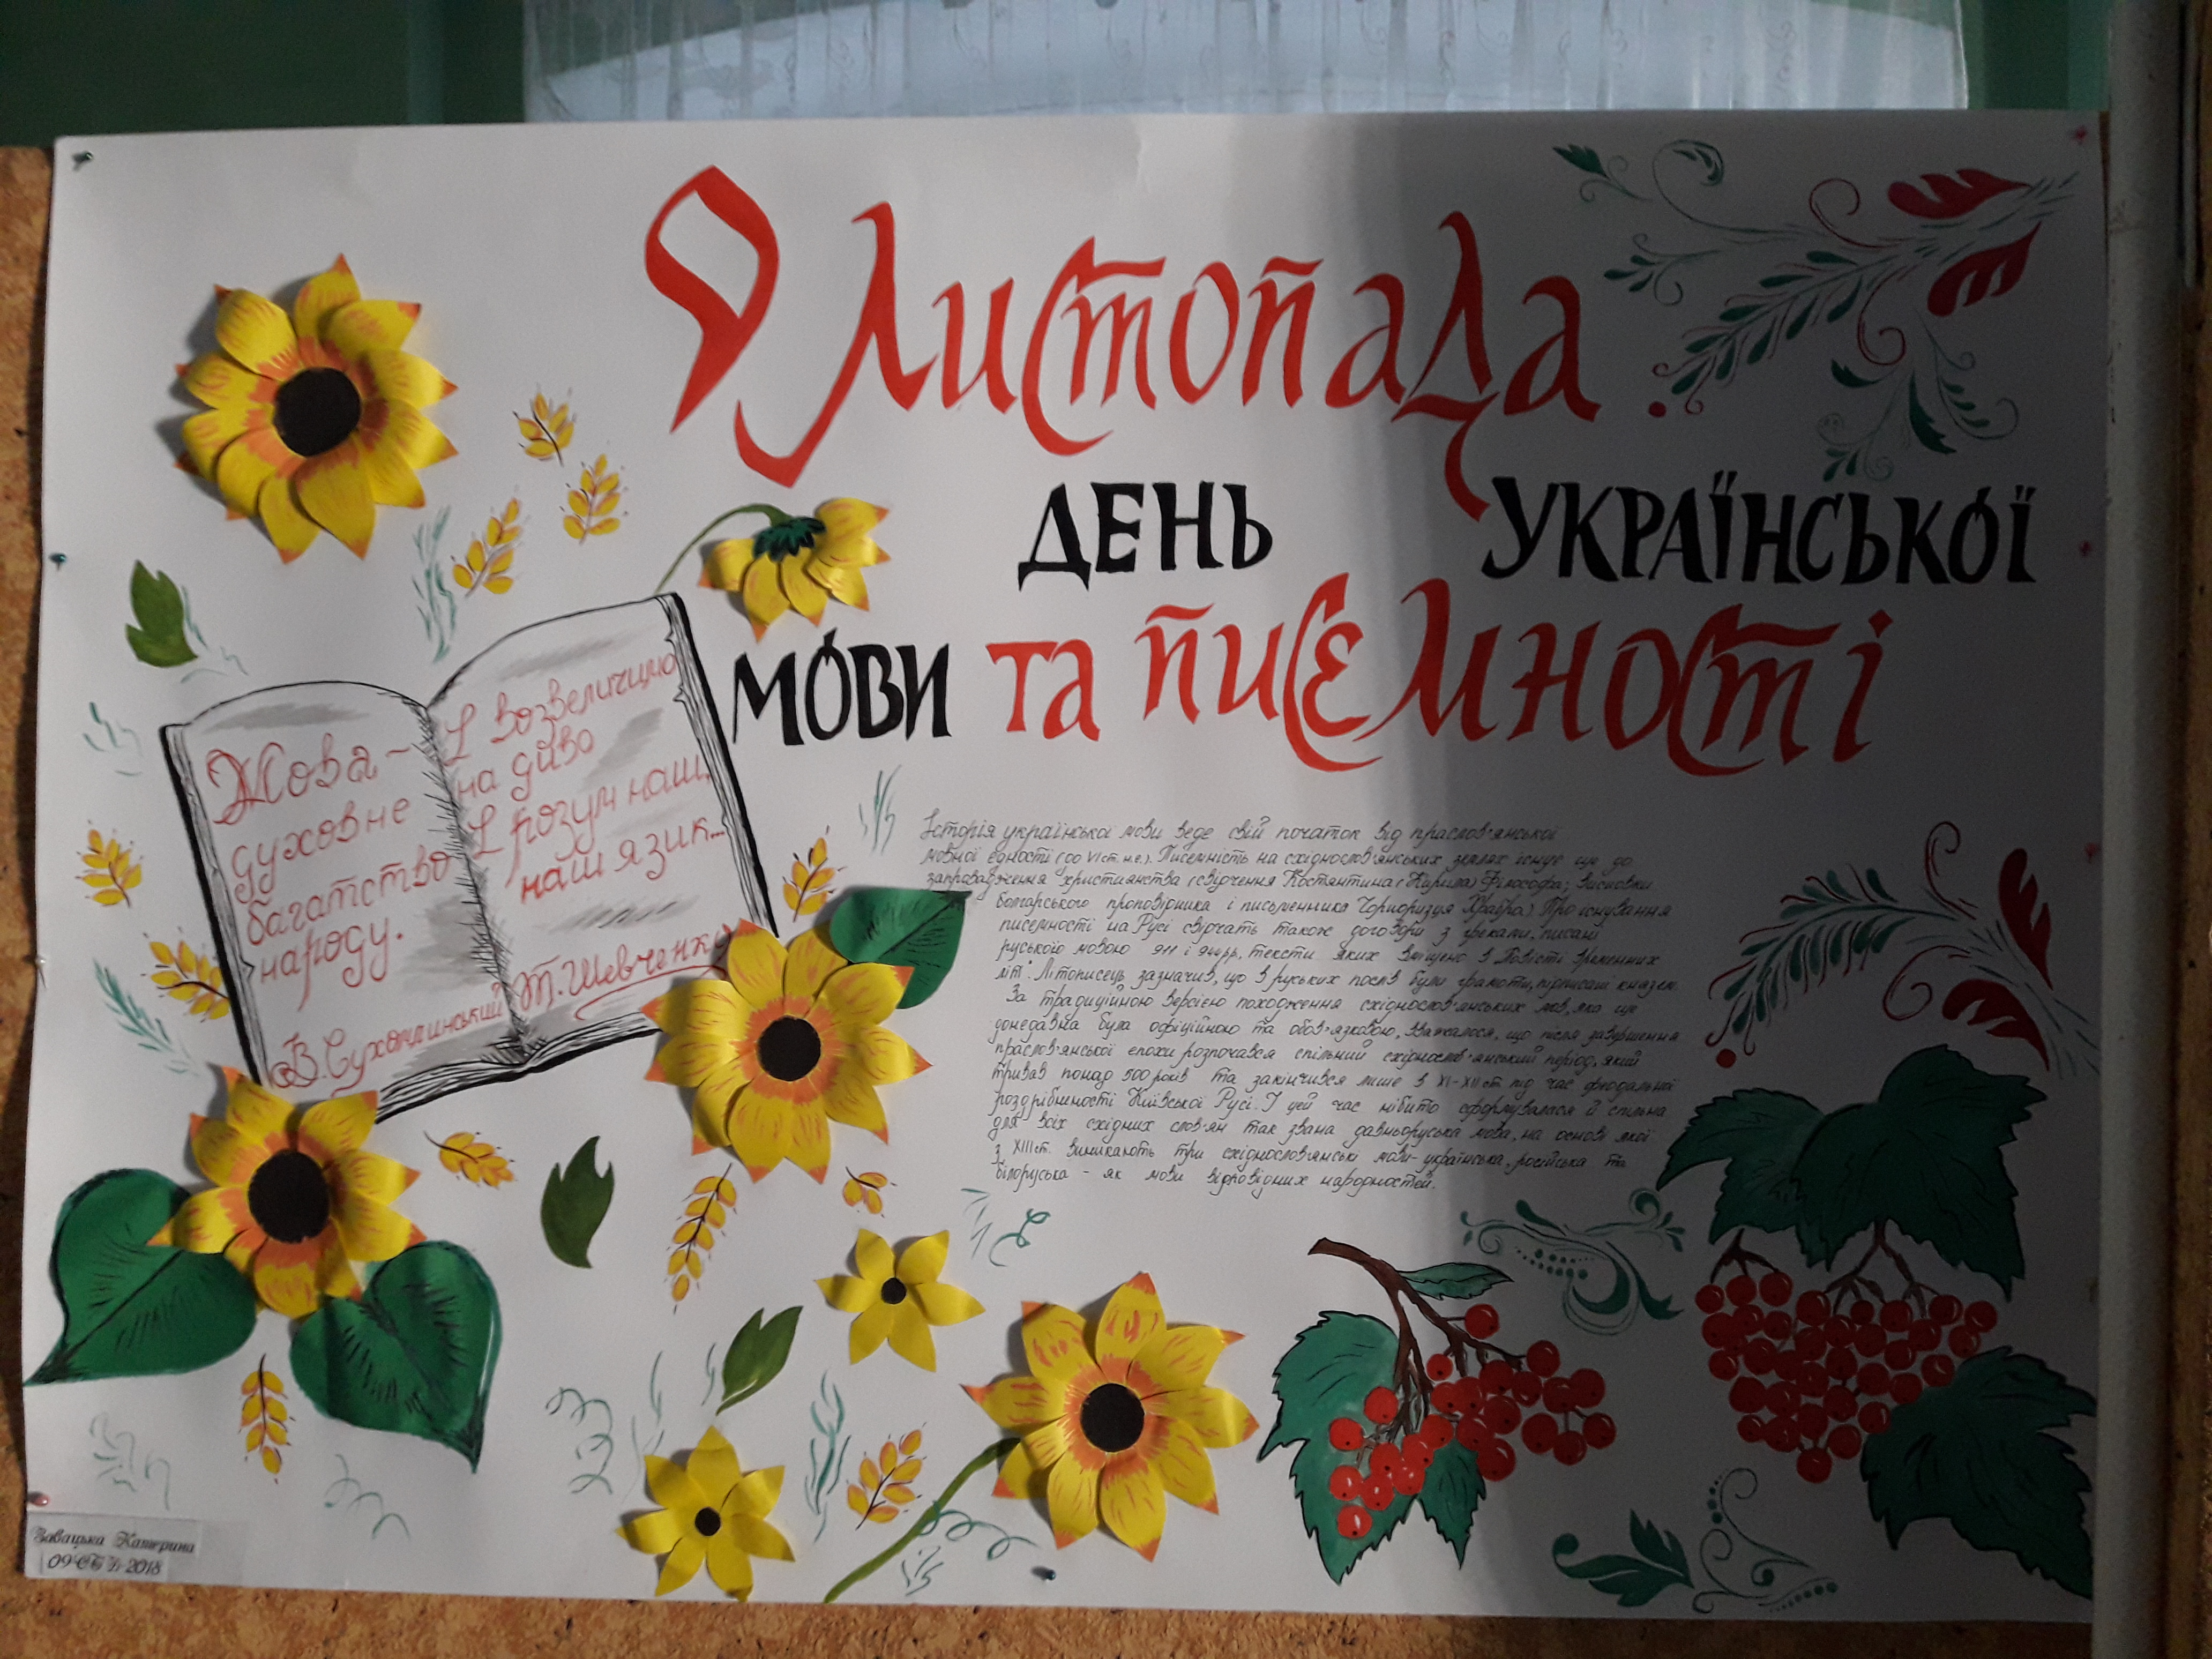 9 Листопада
ДЕНЬ УКРАЇНСЬКОЇ
МОВИ та писємності
Мова –
духовне
багатство
народу.
В. Сухомлинський
І возвеличимо
на диво
І розум наш,
наш язик...
Т. Шевченко
Історія української мови веде свій початок від праслов'янської
мовної єдності (до VI ст. н.е.). Писемність на східнослов'янських землях існує ще до
запровадження християнства (свідчення Костянтина (Кирила) Філософа; висновки
болгарського проповідника і письменника Чорноризця Храбра). Про існування
писемності на Русі свідчать також договори з греками, писані
руською мовою 911 і 944 рр., тексти яких вміщено в Повісті временних
літ. Літописець зазначив, що в руських послів були грамоти, підписані князем.
За традиційною версією походження східнослов'янських мов, яка ще
донедавна була офіційною та обов'язковою, вважалося, що після завершення
праслов'янської епохи розпочався спільний східнослов'янський період, який
тривав понад 500 років та закінчився лише в XI-XII ст. під час феодальної
роздрібності Київської Русі. У цей час нібито сформувалася й спільна
для всіх східних слов'ян так звана давньоруська мова, на основі якої
з XIII ст. виникають три східнослов'янські мови – українська, російська та
білоруська – як мови відповідних народностей.
Завацька Катерина
2018